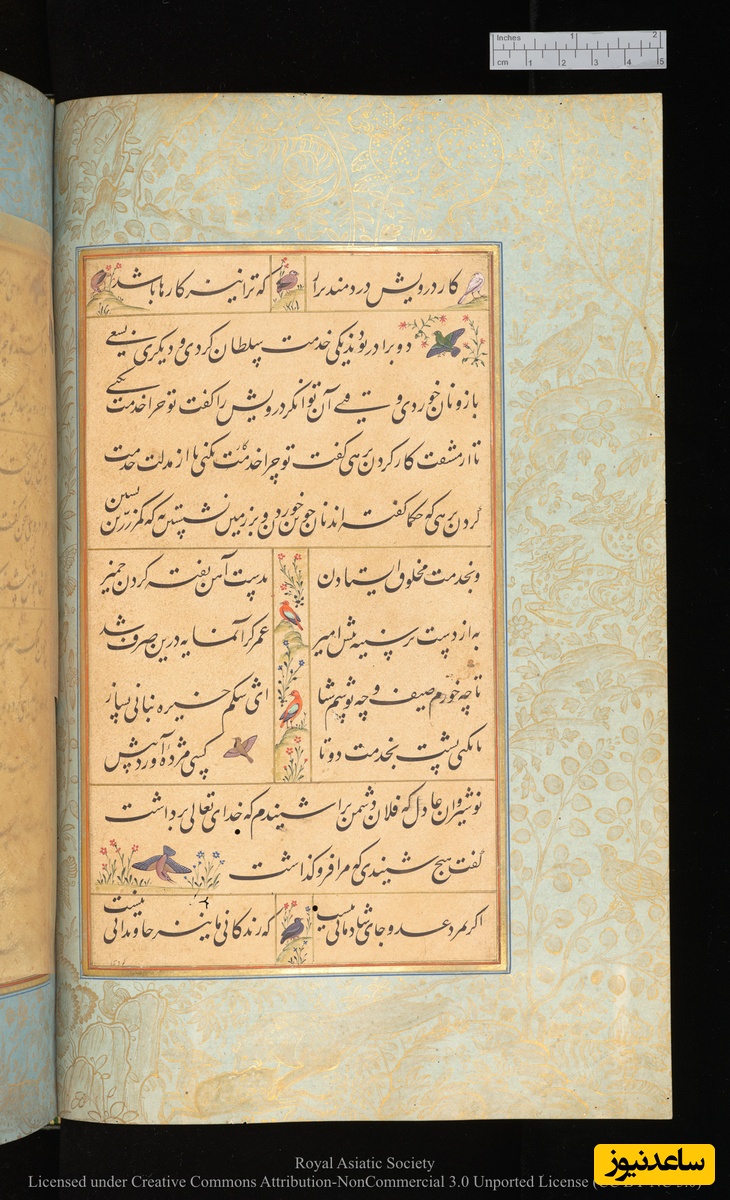 Inches 1 2
cm 1 2 3 4 5
کار درویش دردمند برآر که ترا نیز کارها باشد
دو برادر بودند یکی خدمت سلطان کردی و دیگری بسعی
بازو نان خوردی وقتی آن توانگر درویش را گفت تو چرا خدمت نکنی
تا از مشقت کار کردن برهی گفت تو چرا کار نکنی تا از مذلت خدمت
گردن برهی که حکما گفته اند نان جو خوردن و بر زمین نشستن به که کمر زرین بستن
و بخدمت مخلوق ایستادن بدست آهن تفته کردن خمیر
به از دست بر سینه پیش امیر عمر گرانمایه درین صرف شد
تا چه خورم صیف و چه پوشم شتا ای شکم خیره بنانی بساز
تا نکنی پشت بخدمت دوتا کسی مژده آورد پیش
نوشیروان عادل که فلان دشمن را شنیدم که خدای تعالی برداشت
گفت هیچ شنیدی که مرا فرو گذاشت
اگر بمرد عدو جای شادمانی نیست که زندگانی ما نیز جاودانی نیست
Royal Asiatic Society
Licensed under Creative Commons Attribution-NonCommercial 3.0 Unported License
ساعدنیوز